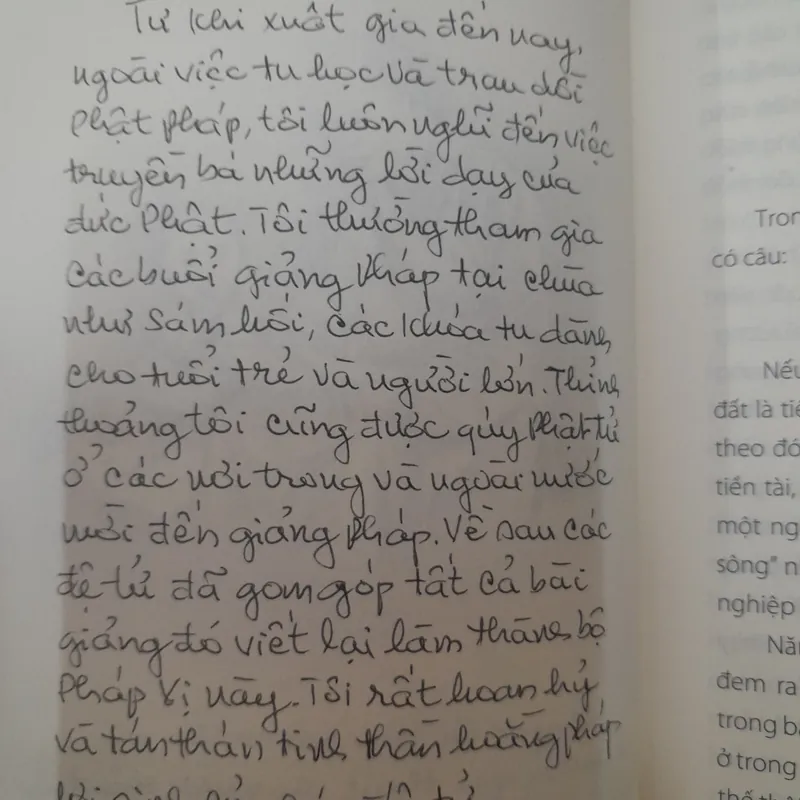 Từ khi xuất gia đến nay,
ngoài việc tu học và trau dồi
Phật pháp, tôi luôn nghĩ đến việc
truyền bá những lời dạy của
đức Phật. Tôi thường tham gia
các buổi giảng pháp tại chùa
như Sám hối, các khóa tu dành
cho tuổi trẻ và người lớn. Thỉnh
thoảng tôi cũng được quý Phật tử
ở các nơi trong và ngoài nước
mời đến giảng pháp. Về sau các
đệ tử đã gom góp tất cả bài
giảng đó viết lại làm thành bộ
Pháp vị này. Tôi rất hoan hỷ
và tán thán tinh thần hoằng pháp
Tron
có câu:
Nếu
đất là tiề
theo đó
tiền tài,
một ng
sông" n
nghiệp
Năn
đem ra
trong bà
ở trong